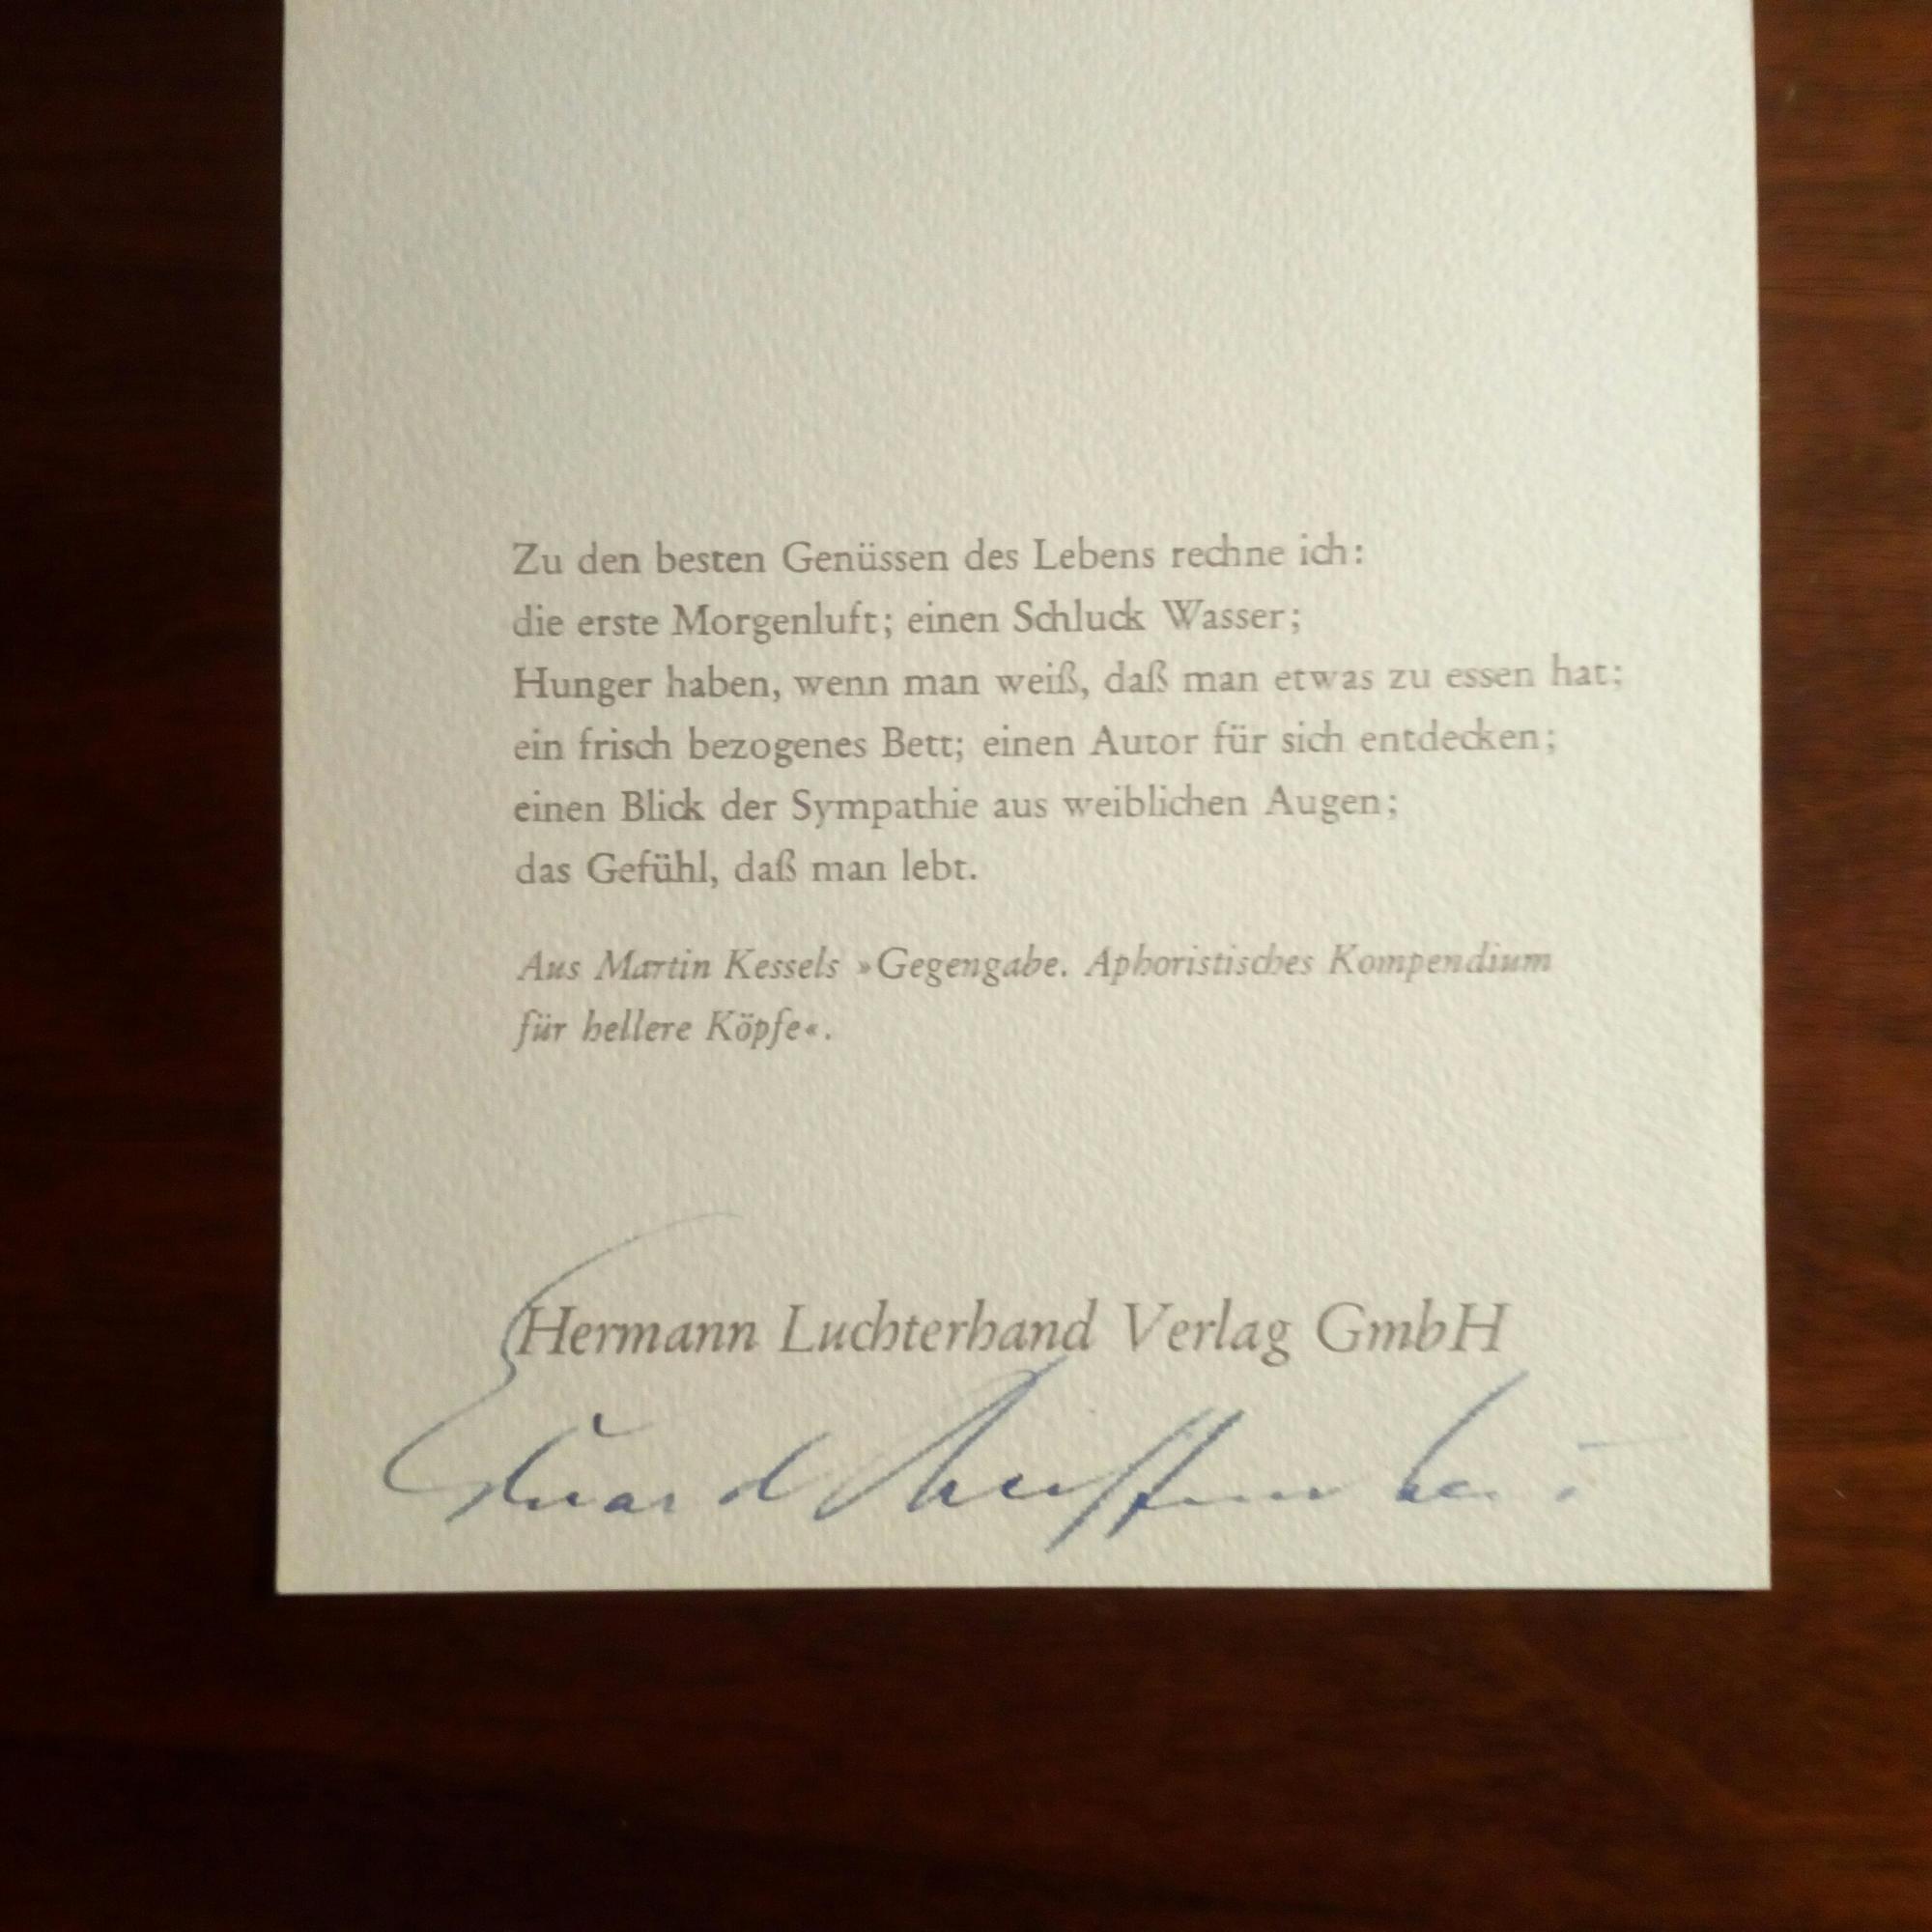 Zu den besten Genüssen des Lebens rechne ich:
die erste Morgenluft; einen Schluck Wasser;
Hunger haben, wenn man weiß, daß man etwas zu essen hat;
ein frisch bezogenes Bett; einen Autor für sich entdecken;
einen Blick der Sympathie aus weiblichen Augen;
das Gefühl, daß man lebt.
Aus Martin Kessels »Gegengabe. Aphoristisches Kompendium
für hellere Köpfe«.
Hermann Luchterhand Verlag GmbH
Eduard